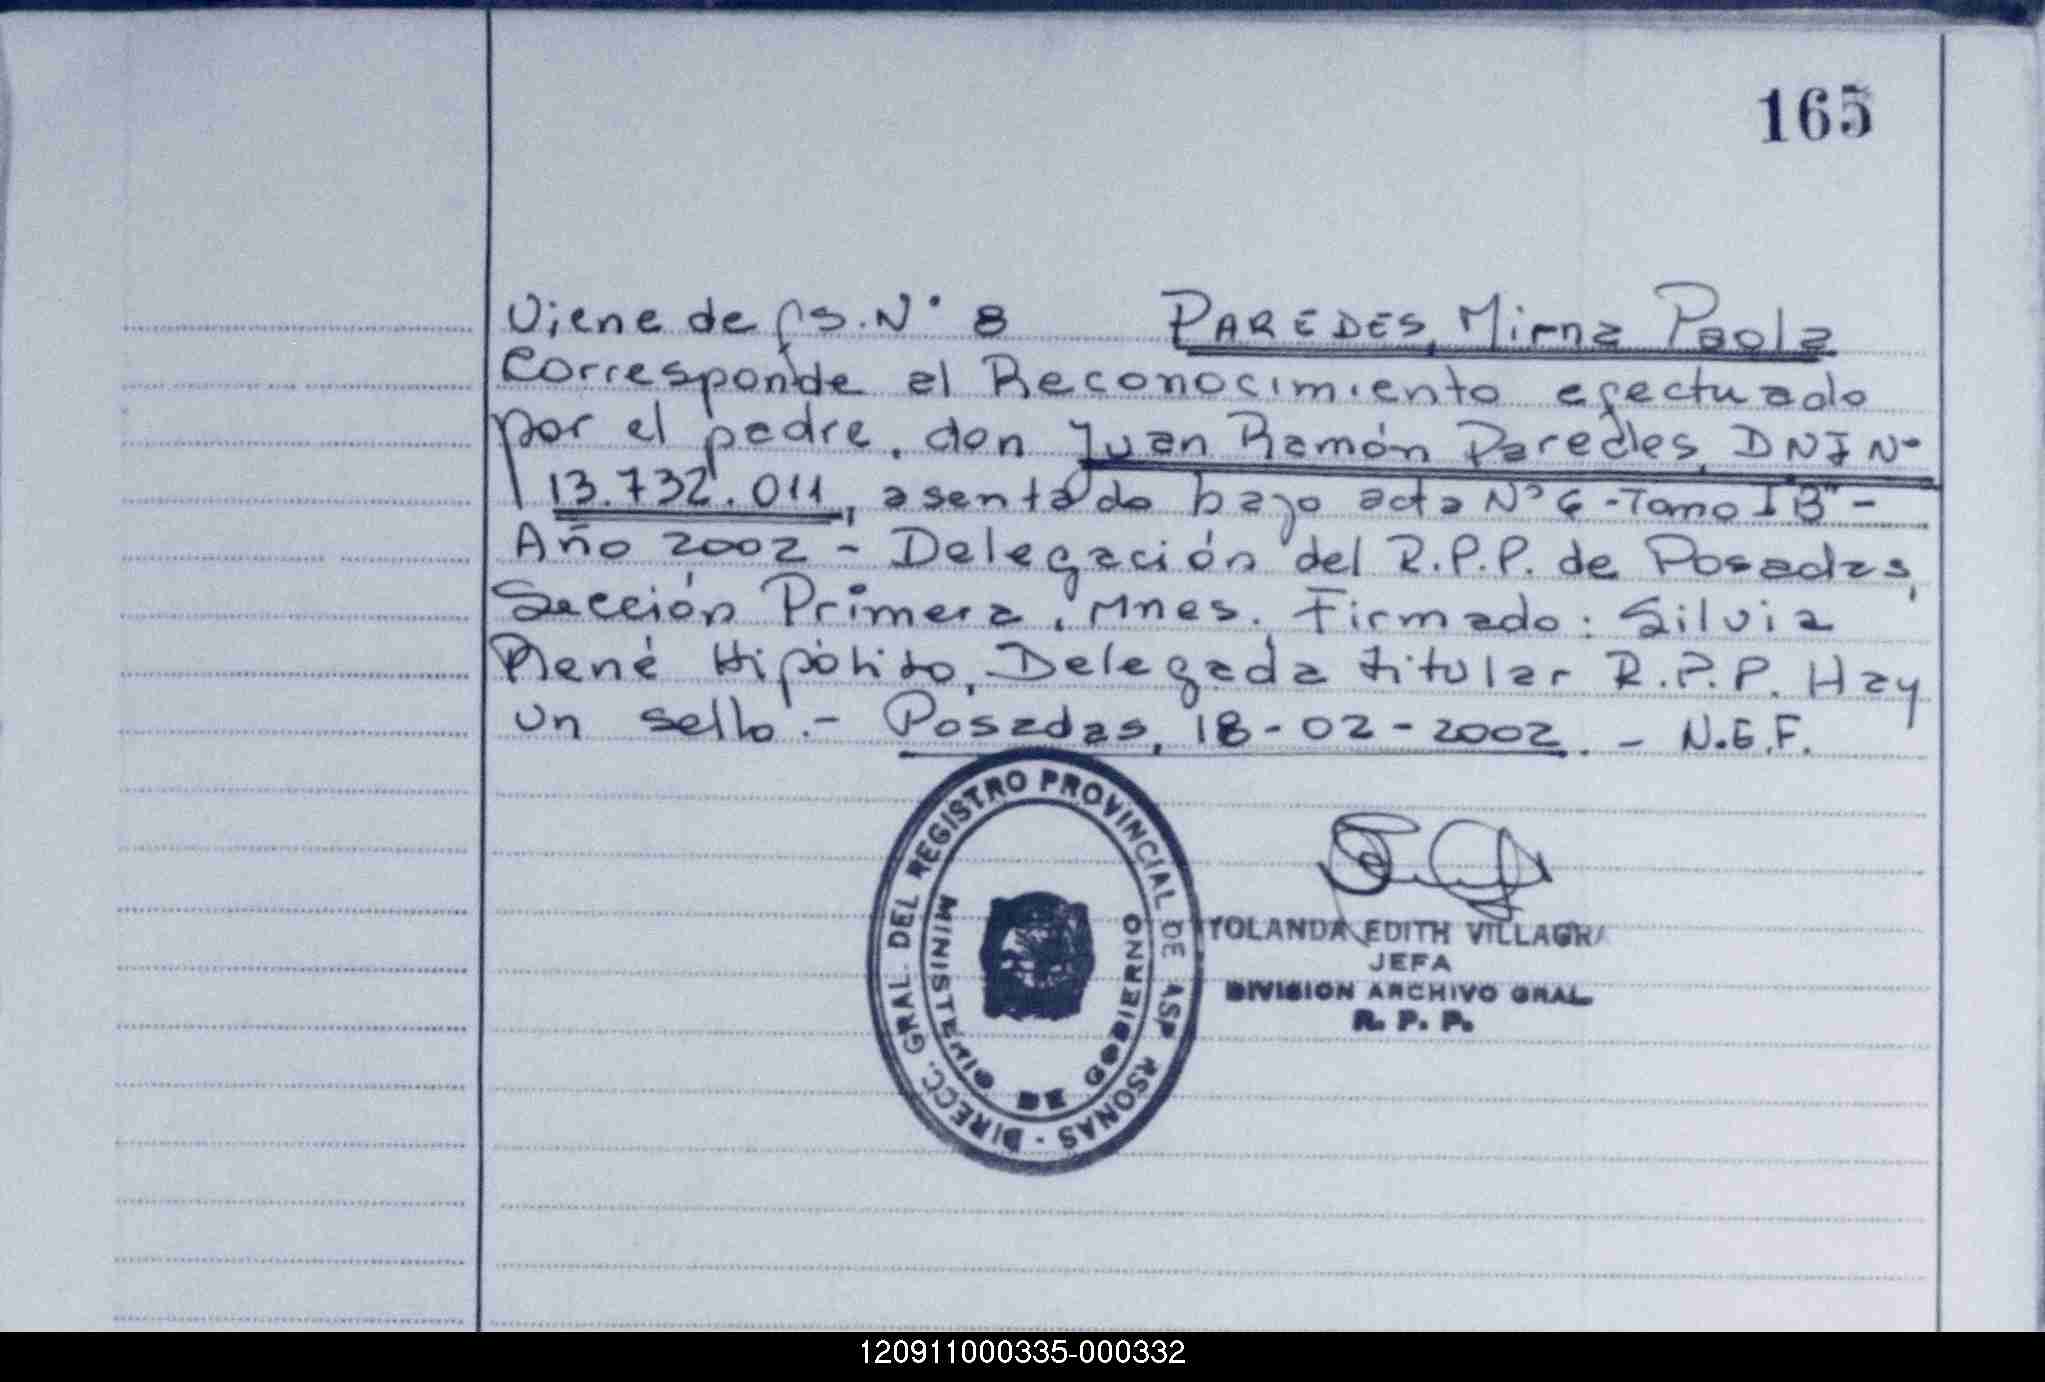 165
Viene de fs. N° 8 PAREDES, Mirna Paola
Corresponde al Reconocimiento efectuado
por el padre, don Juan Ramón Paredes, DNI N°
13.732.011, asentado bajo acta N° 6 - Tomo I "B" -
Año 2002 - Delegación del R.P.P. de Posadas,
Sección Primera, Mnes. Firmado: Silvia
René Hipólito, Delegada titular R.P.P. Hay
un sello.- Posadas, 18-02-2002. - N.G.F.
DIRECC. GRAL. DEL REGISTRO PROVINCIAL DE
MINISTERIO DE GOBIERNO
YOLANDA EDITH VILLAGRA
JEFA
DIVISION ARCHIVO GRAL.
R. P. P.
120911000335-000332